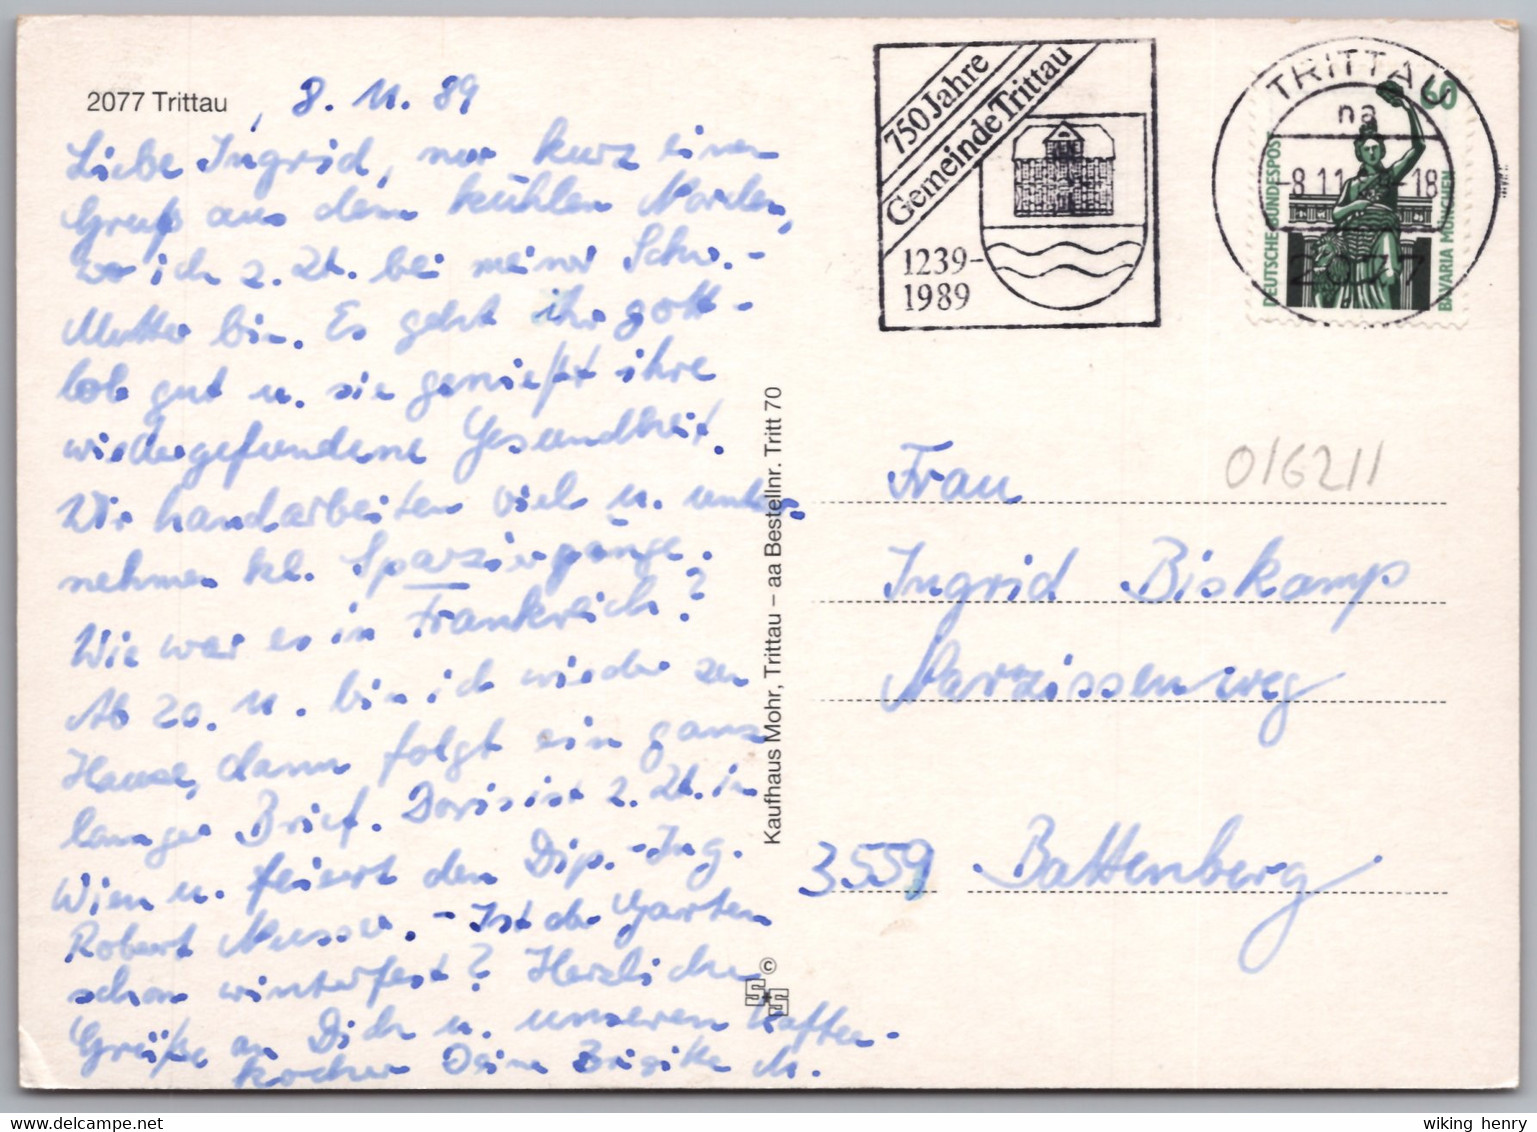 2077 Trittau , 8. 11. 89
Liebe Ingrid, nur kurz einen
Gruß aus dem kühlen Norden,
wo ich z. Zt. bei meiner Schw.-
Mutter bin. Es geht ihr gott-
lob gut u. sie genießt ihre
wiedergefundene Gesundheit.
Wir handarbeiten viel u. unter-
nehmen kl. Spaziergänge.
Wie war es in Frankreich?
Ab 20. 11. bin ich wieder zu
Hause, dann folgt ein ganz
langer Brief. Doris ist z. Zt. in
Wien u. feiert den Dip.-Ing.
Robert Musser. - Ist der Garten
schon winterfest? Herzliche
Grüße an Dich u. unseren Kaffee-
kocher Deine Brigitte M.
Kaufhaus Mohr, Trittau – aa Bestellnr. Tritt 70
©
750 Jahre
Gemeinde Trittau
1239-
1989
TRITTAU
na
-8.11. -18
2077
60
DEUTSCHE BUNDESPOST
BAVARIA MÜNCHEN
016211
Frau
Ingrid Biskamp
Narzissenweg
3559 Battenberg
wiking henry